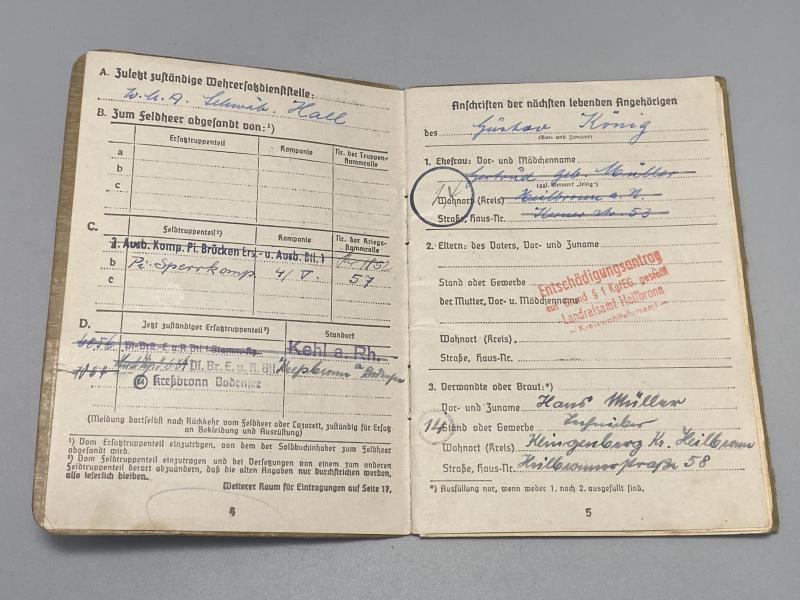 A. Zuletzt zuständige Wehrersatzdienststelle:
W.M.A. Schwäb. Hall
B. Zum Feldheer abgesandt von:¹)
Ersatztruppenteil Kompanie Nr. der Truppen-
stammrolle
a
b
c
C.
Feldtruppenteil²) Kompanie Nr. der Kriegs-
stammrolle
2. Ausb. Komp. Pi. Brücken Ers.- u. Ausb. Btl. 1
b Pi. Sperrkomp. 4/V. 57
c
D.
Jetzt zuständiger Ersatztruppenteil²) Standort
Kehl a. Rh.
Pi. Br. E. u. A. Btl
Kreßbronn a Bodensee
Kreßbronn Bodensee
(Meldung dortselbst nach Rückkehr vom Feldheer oder Lazarett, zuständig für Ersatz
an Bekleidung und Ausrüstung)
¹) Vom Ersatztruppenteil einzutragen, von dem der Soldbuchinhaber zum Feldheer
abgesandt wird.
²) Vom Feldtruppenteil einzutragen und bei Versetzungen von einem zum anderen
Feldtruppenteil derart abzuändern, daß die alten Angaben nur durchstrichen werden,
also leserlich bleiben.
Weiterer Raum für Eintragungen auf Seite 17.
4
Anschriften der nächsten lebenden Angehörigen
des Gustav König
(Vor- und Zuname)
1. Ehefrau: Vor- und Mädchenname
Gertrud geb. Müller
(ggf. Vermerk „ledig")
Wohnort (Kreis) Heilbronn a. N.
Straße, Haus-Nr. Kerner Str. 53
14
2. Eltern: des Vaters, Vor- und Zuname
Stand oder Gewerbe
der Mutter, Vor- u. Mädchenname
Entschädigungsantrag
auf Grund § 1 KgfEG. gestellt
Landratsamt Heilbronn
– Kreiswohlfahrtsamt –
Wohnort (Kreis)
Straße, Haus-Nr.
3. Verwandte oder Braut:*)
Vor- und Zuname Hans Müller
14 Stand oder Gewerbe
Wohnort (Kreis) Klingenberg Kr. Heilbronn
Straße, Haus-Nr. Heilbronnerstraße 58
*) Ausfüllung nur, wenn weder 1. noch 2. ausgefüllt sind.
5